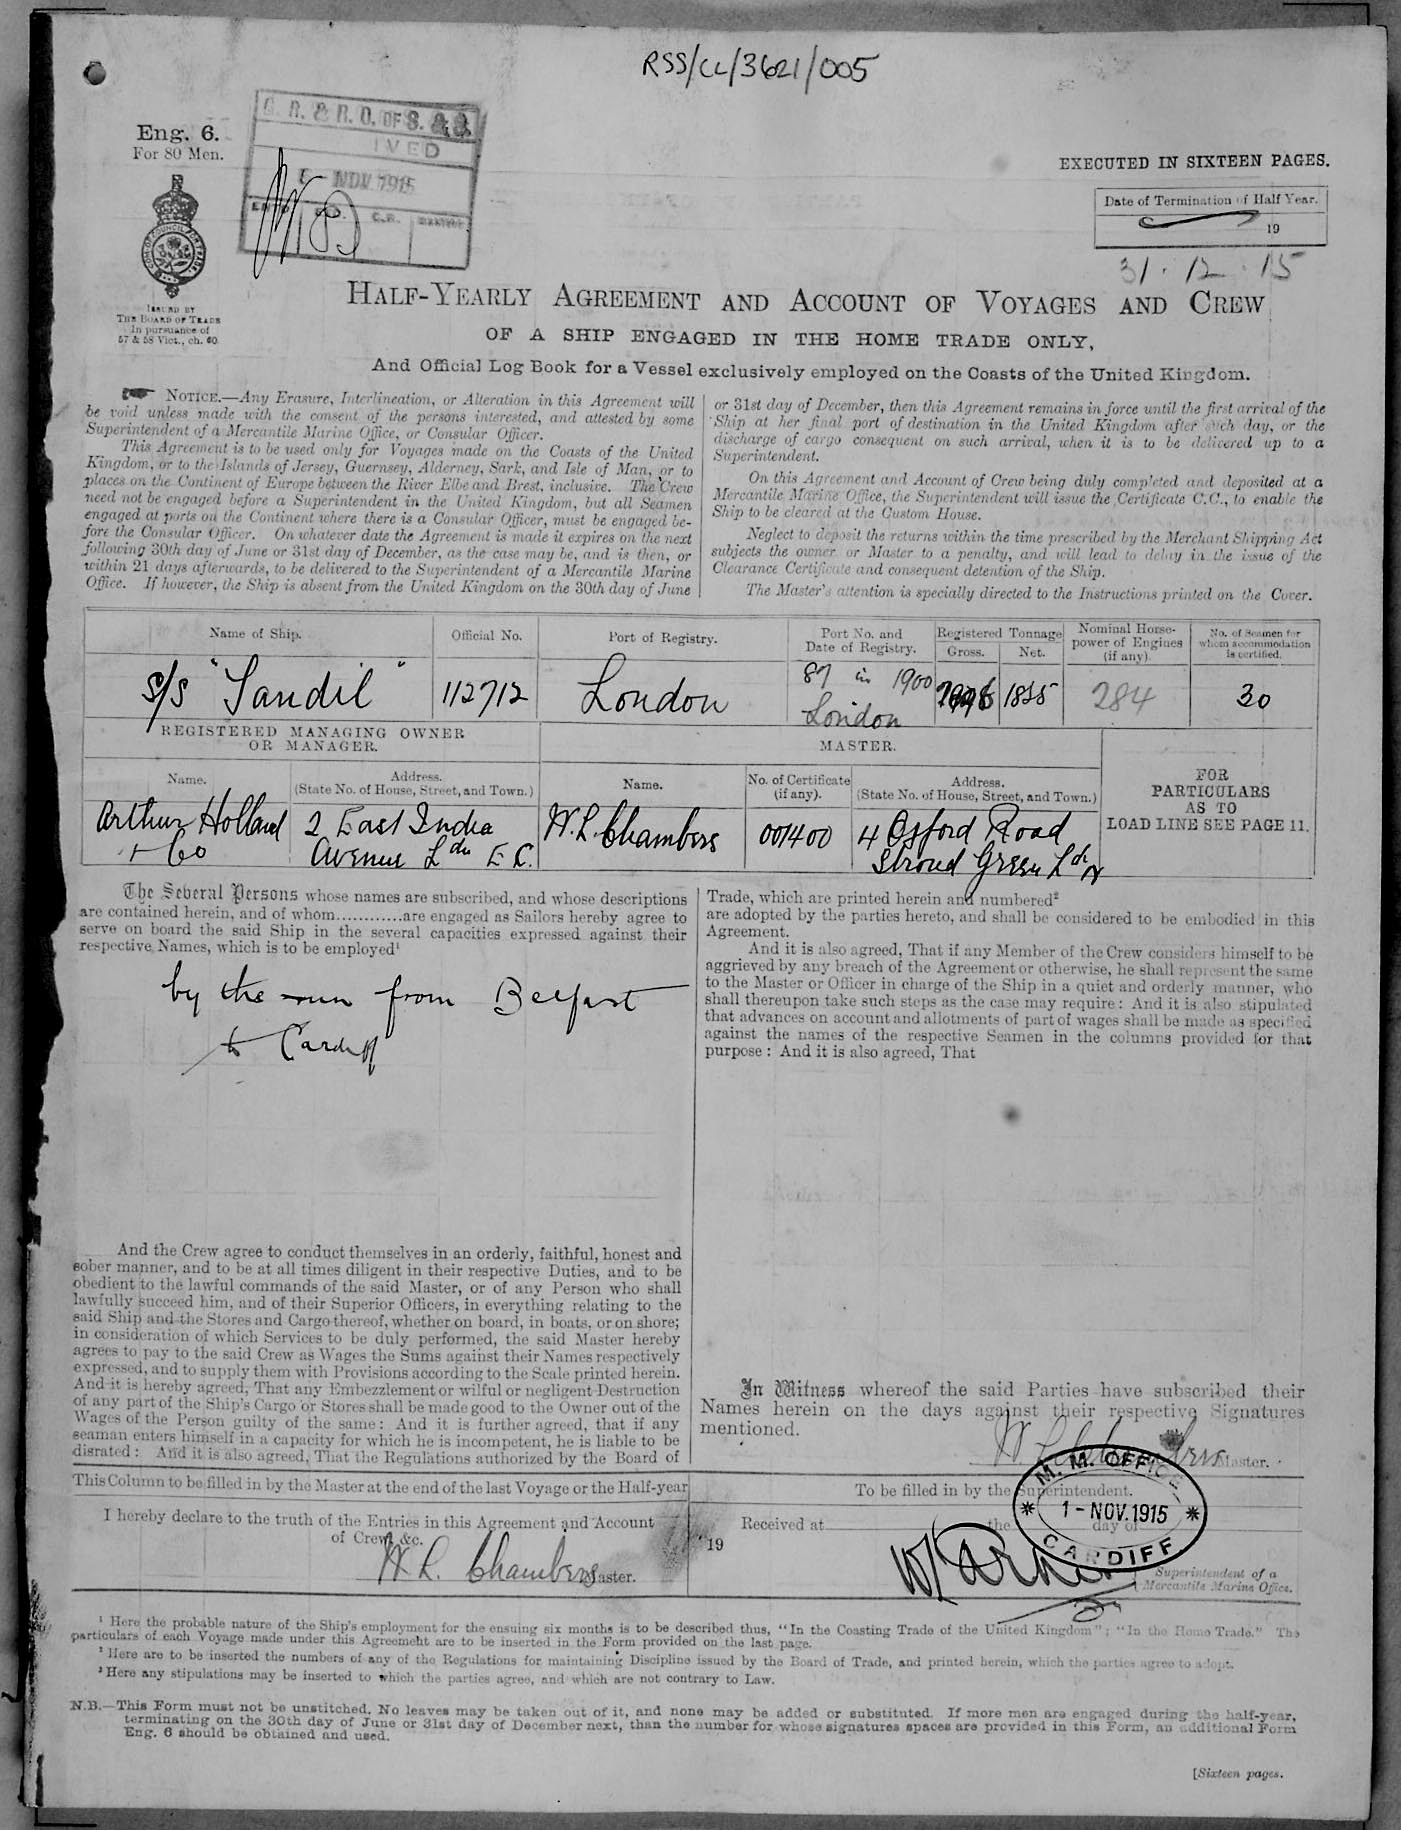 RSS/CL/3621/005
Eng. 6.
For 80 Men.
G. R. & R. O. OF S. & S.
IVED
NOV 1915
C.R.
EXECUTED IN SIXTEEN PAGES.
Date of Termination of Half Year.
19
31.12.15
ISSUED BY
THE BOARD OF TRADE
In pursuance of
57 & 58 Vict., ch. 60
HALF-YEARLY AGREEMENT AND ACCOUNT OF VOYAGES AND CREW
OF A SHIP ENGAGED IN THE HOME TRADE ONLY,
And Official Log Book for a Vessel exclusively employed on the Coasts of the United Kingdom.
NOTICE.—Any Erasure, Interlineation, or Alteration in this Agreement will
be void unless made with the consent of the persons interested, and attested by some
Superintendent of a Mercantile Marine Office, or Consular Officer.
This Agreement is to be used only for Voyages made on the Coasts of the United
Kingdom, or to the Islands of Jersey, Guernsey, Alderney, Sark, and Isle of Man, or to
places on the Continent of Europe between the River Elbe and Brest, inclusive. The Crew
need not be engaged before a Superintendent in the United Kingdom, but all Seamen
engaged at ports on the Continent where there is a Consular Officer, must be engaged be-
fore the Consular Officer. On whatever date the Agreement is made it expires on the next
following 30th day of June or 31st day of December, as the case may be, and is then, or
within 21 days afterwards, to be delivered to the Superintendent of a Mercantile Marine
Office. If however, the Ship is absent from the United Kingdom on the 30th day of June
or 31st day of December, then this Agreement remains in force until the first arrival of the
Ship at her final port of destination in the United Kingdom after such day, or the
discharge of cargo consequent on such arrival, when it is to be delivered up to a
Superintendent.
On this Agreement and Account of Crew being duly completed and deposited at a
Mercantile Marine Office, the Superintendent will issue the Certificate C.C., to enable the
Ship to be cleared at the Custom House.
Neglect to deposit the returns within the time prescribed by the Merchant Shipping Act
subjects the owner or Master to a penalty, and will lead to delay in the issue of the
Clearance Certificate and consequent detention of the Ship.
The Master's attention is specially directed to the Instructions printed on the Cover.
Name of Ship.
Official No.
Port of Registry.
Port No. and
Date of Registry.
Registered Tonnage
Gross.
Net.
Nominal Horse-
power of Engines
(if any).
No. of Seamen for
whom accommodation
is certified.
s/s "Sandil"
112712
London
87 in 1900
London
1855
284
30
REGISTERED MANAGING OWNER
OR MANAGER.
MASTER.
Name.
Address.
(State No. of House, Street, and Town.)
Name.
No. of Certificate
(if any).
Address.
(State No. of House, Street, and Town.)
FOR
PARTICULARS
AS TO
LOAD LINE SEE PAGE 11.
Arthur Holland
+ Co
2 East India
Avenue Ldn E.C.
W. L. Chambers
001400
4 Osford Road
Stroud Green Ldn N
The Several Persons whose names are subscribed, and whose descriptions
are contained herein, and of whom............are engaged as Sailors hereby agree to
serve on board the said Ship in the several capacities expressed against their
respective Names, which is to be employed¹
by the run from Belfast
to Cardiff
Trade, which are printed herein and numbered²
are adopted by the parties hereto, and shall be considered to be embodied in this
Agreement.
And it is also agreed, That if any Member of the Crew considers himself to be
aggrieved by any breach of the Agreement or otherwise, he shall represent the same
to the Master or Officer in charge of the Ship in a quiet and orderly manner, who
shall thereupon take such steps as the case may require: And it is also stipulated
that advances on account and allotments of part of wages shall be made as specified
against the names of the respective Seamen in the columns provided for that
purpose: And it is also agreed, That
And the Crew agree to conduct themselves in an orderly, faithful, honest and
sober manner, and to be at all times diligent in their respective Duties, and to be
obedient to the lawful commands of the said Master, or of any Person who shall
lawfully succeed him, and of their Superior Officers, in everything relating to the
said Ship and the Stores and Cargo thereof, whether on board, in boats, or on shore;
in consideration of which Services to be duly performed, the said Master hereby
agrees to pay to the said Crew as Wages the Sums against their Names respectively
expressed, and to supply them with Provisions according to the Scale printed herein.
And it is hereby agreed, That any Embezzlement or wilful or negligent Destruction
of any part of the Ship's Cargo or Stores shall be made good to the Owner out of the
Wages of the Person guilty of the same: And it is further agreed, that if any
seaman enters himself in a capacity for which he is incompetent, he is liable to be
disrated: And it is also agreed, That the Regulations authorized by the Board of
In Witness whereof the said Parties have subscribed their
Names herein on the days against their respective Signatures
mentioned.
W L Chambers Master.
This Column to be filled in by the Master at the end of the last Voyage or the Half-year
I hereby declare to the truth of the Entries in this Agreement and Account
of Crew, &c.
W. L. Chambers Master.
To be filled in by the Superintendent.
Received at the day of
19
M. M. OFFICE
1 - NOV. 1915
CARDIFF
Superintendent of a
Mercantile Marine Office.
¹ Here the probable nature of the Ship's employment for the ensuing six months is to be described thus, "In the Coasting Trade of the United Kingdom"; "In the Home Trade." The
particulars of each Voyage made under this Agreement are to be inserted in the Form provided on the last page.
² Here are to be inserted the numbers of any of the Regulations for maintaining Discipline issued by the Board of Trade, and printed herein, which the parties agree to adopt.
³ Here any stipulations may be inserted to which the parties agree, and which are not contrary to Law.
N.B.—This Form must not be unstitched. No leaves may be taken out of it, and none may be added or substituted. If more men are engaged during the half-year,
terminating on the 30th day of June or 31st day of December next, than the number for whose signatures spaces are provided in this Form, an additional Form
Eng. 6 should be obtained and used.
[Sixteen pages.